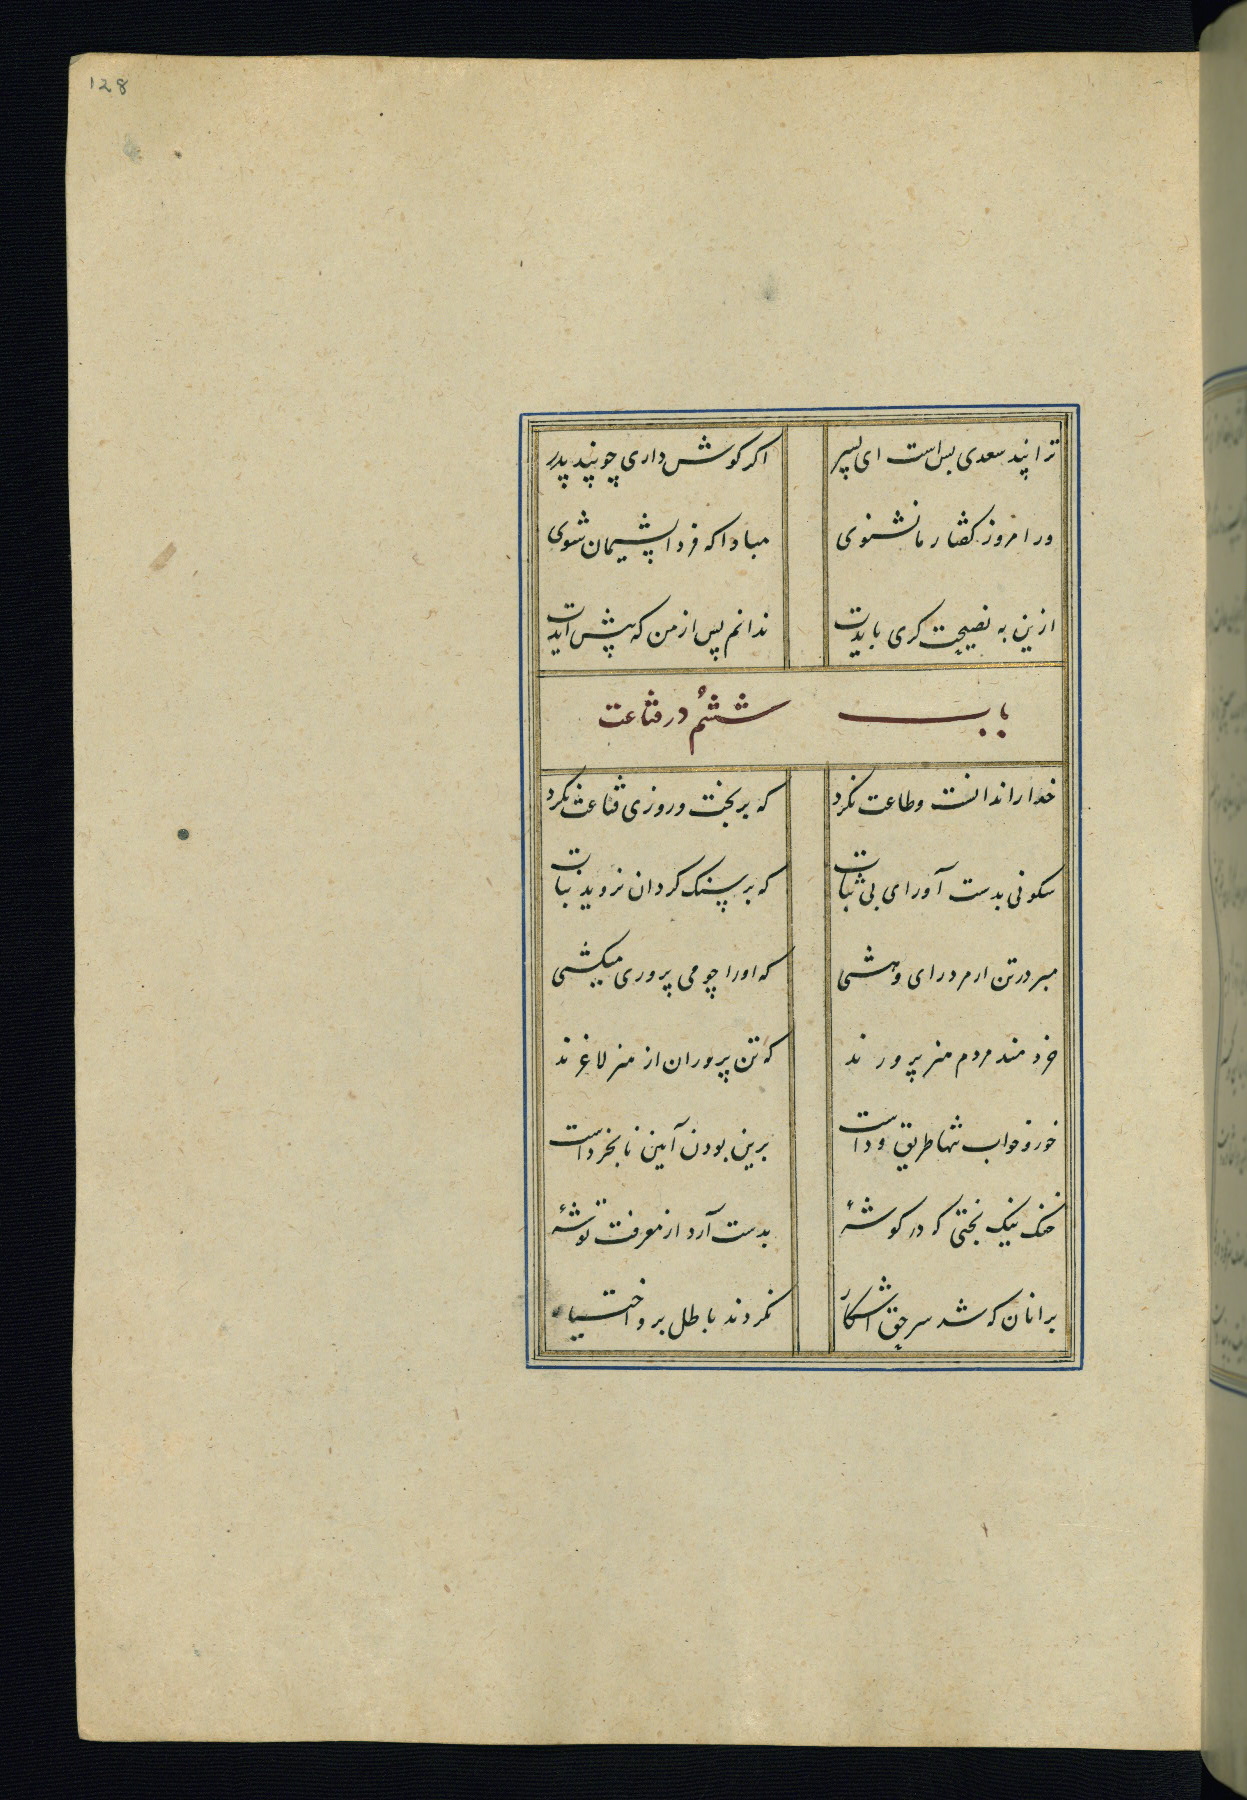 128
ترا پند سعدی بس است ای پسر اکر کوش داری چو پند پدر
ور امروز کفتار ما نشنوی مبادا که فردا پشیمان شوی
ازین به نصیحت کری بایدت ندانم پس از من که پیش آیدت
باب ششم در قناعت
خدا را ندانست و طاعت نکرد که بر بخت و روزی قناعت نکرد
سکونی بدست آور ای بی ثبات که بر سنک کردان نروید نبات
مپرور تن ار مرد رای و هشی که او را چو می پروری میکشی
خردمند مردم هنر پرورند که تن پروران از هنر لاغرند
خور و خواب تنها طریق ددست برین بودن آیین نابخردست
خنک نیک بختی که در کوشۀ بدست آرد از معرفت توشۀ
بر انان که شد سر حق آشکار نکردند باطل برو اختیار